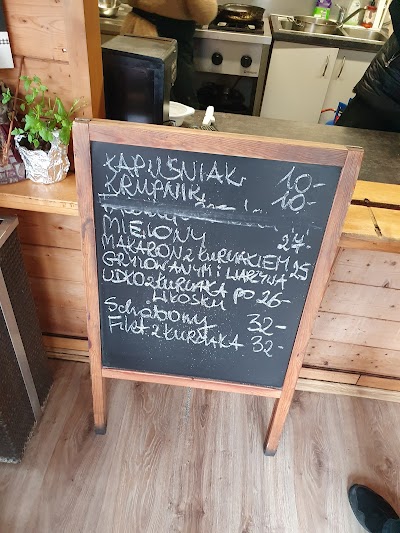 KAPUŚNIAK 10-
KRUPNIK 10-
MIELONY 27-
MAKARON Z KURCZAKIEM 25
GRILOWANYM I WARZYWA
UDKO Z KURCZAKA PO 26-
WŁOSKU
Schabowy 32-
Filet z KURCZAKA 32-